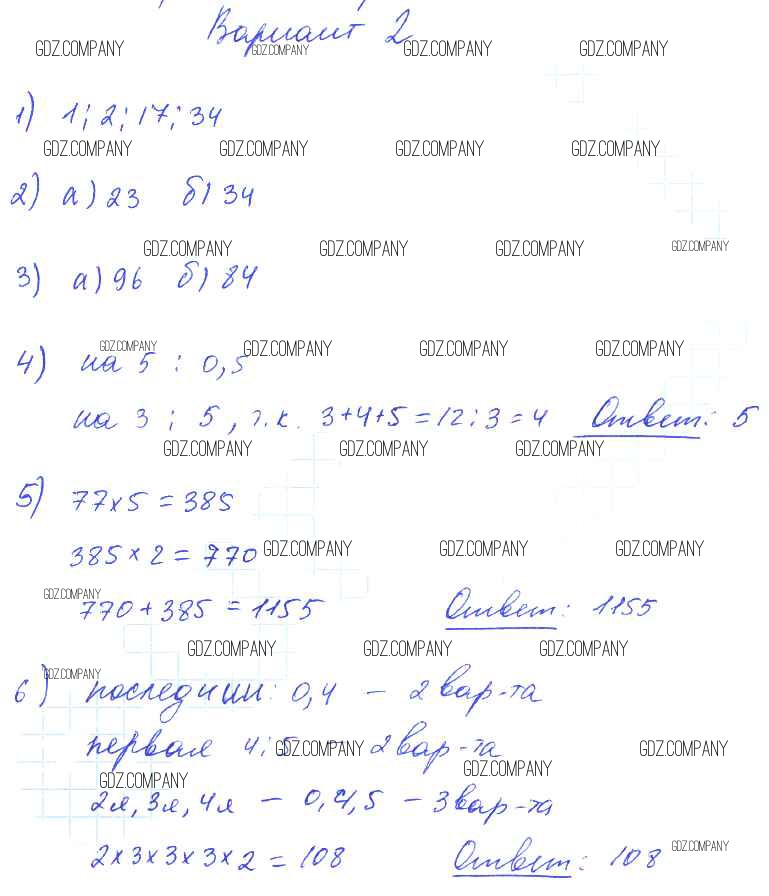 Вариант 2
GDZ.COMPANY GDZ.COMPANY GDZ.COMPANY GDZ.COMPANY
1) 1; 2; 17; 34
GDZ.COMPANY GDZ.COMPANY GDZ.COMPANY GDZ.COMPANY
2) а) 23 б) 34
GDZ.COMPANY GDZ.COMPANY GDZ.COMPANY GDZ.COMPANY
3) а) 96 б) 84
GDZ.COMPANY GDZ.COMPANY GDZ.COMPANY GDZ.COMPANY
4) на 5 : 0,5
на 3 : 5, т.к. 3+4+5=12:3=4 Ответ: 5
GDZ.COMPANY GDZ.COMPANY GDZ.COMPANY
5) 77×5=385
385×2=770
GDZ.COMPANY GDZ.COMPANY GDZ.COMPANY
GDZ.COMPANY
770+385=1155 Ответ: 1155
GDZ.COMPANY GDZ.COMPANY GDZ.COMPANY
GDZ.COMPANY
6) последнии: 0,4 – 2 вар-та
первая 4;5 – 2 вар-та
GDZ.COMPANY GDZ.COMPANY
GDZ.COMPANY GDZ.COMPANY
2я, 3я, 4я – 0,4,5 – 3 вар-та
2×3×3×3×2=108 Ответ: 108
GDZ.COMPANY